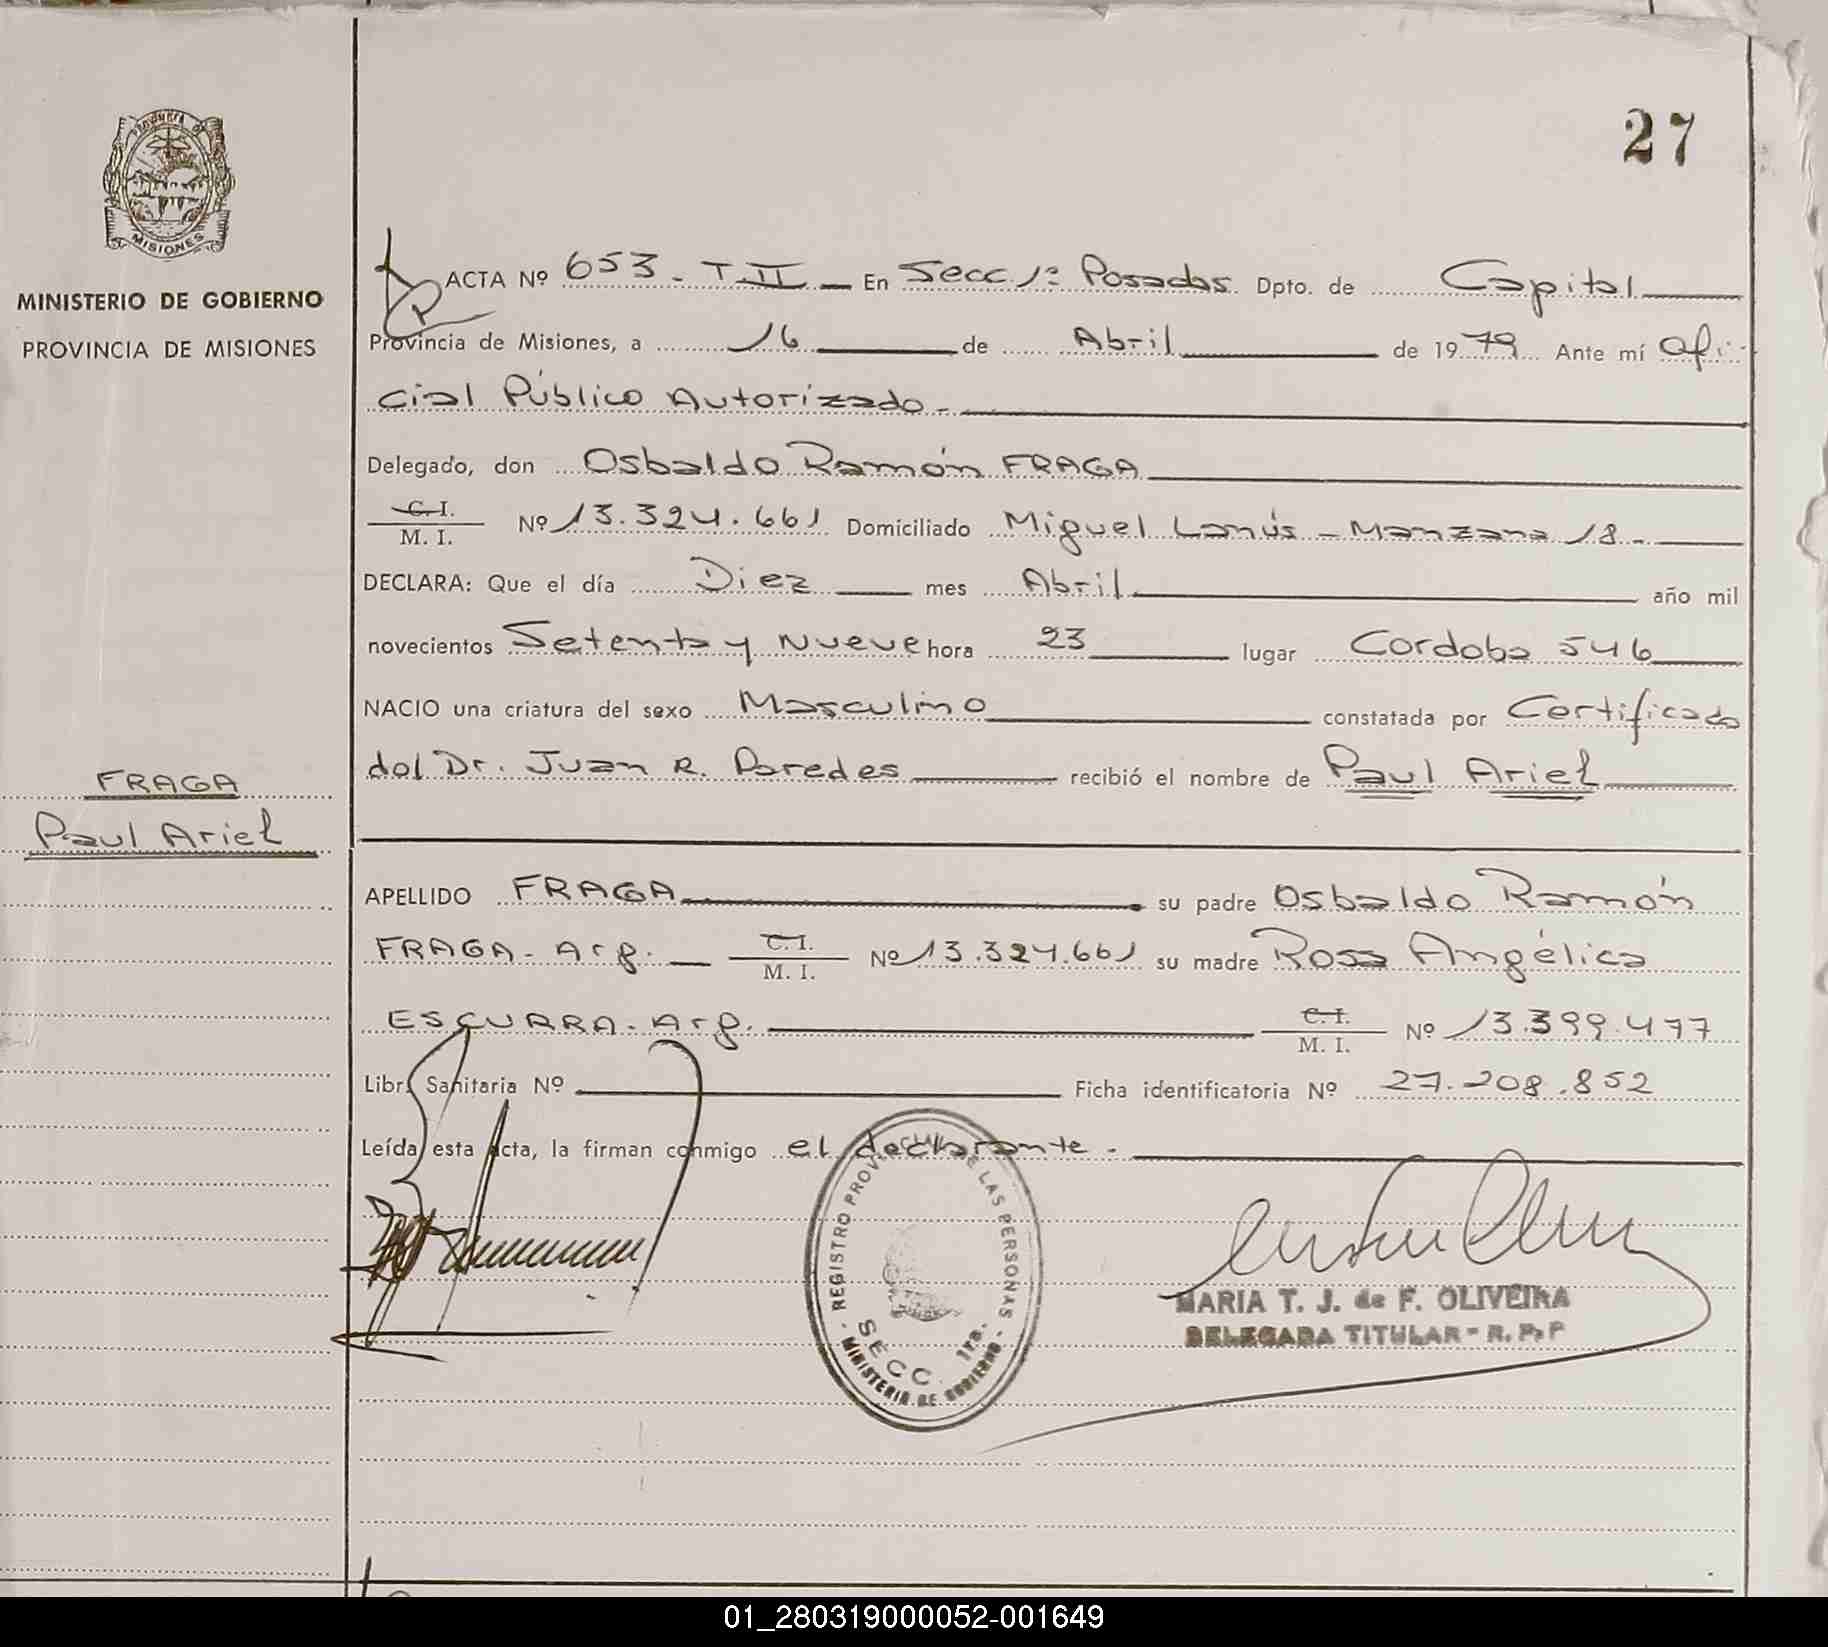 27
PROVINCIA DE
MISIONES
MINISTERIO DE GOBIERNO
PROVINCIA DE MISIONES
FRAGA
Paul Ariel
ACTA Nº 653 - T II - En Secc 1ª Posadas Dpto. de Capital
Provincia de Misiones, a 16 de Abril de 1979 Ante mí Ofi-
cial Público Autorizado -
Delegado, don Osbaldo Ramón FRAGA
C. I. / M. I. Nº 13.324.661 Domiciliado Miguel Lanús - Manzana 18 -
DECLARA: Que el día Diez mes Abril año mil
novecientos Setenta y Nueve hora 23 lugar Cordoba 546
NACIO una criatura del sexo Masculino constatada por Certificado
del Dr. Juan R. Paredes recibió el nombre de Paul Ariel
APELLIDO FRAGA su padre Osbaldo Ramón
FRAGA - Arg. C. I. / M. I. Nº 13.324.661 su madre Rosa Angélica
ESCURRA - Arg. C. I. / M. I. Nº 13.399.477
Libr. Sanitaria Nº Ficha identificatoria Nº 27.208.852
Leída esta acta, la firman conmigo el declarante.
REGISTRO PROVINCIAL DE LAS PERSONAS
SECC. 1ra.
- MINISTERIO DE GOBIERNO -
MARIA T. J. de F. OLIVEIRA
DELEGADA TITULAR - R. P. P
01_280319000052-001649